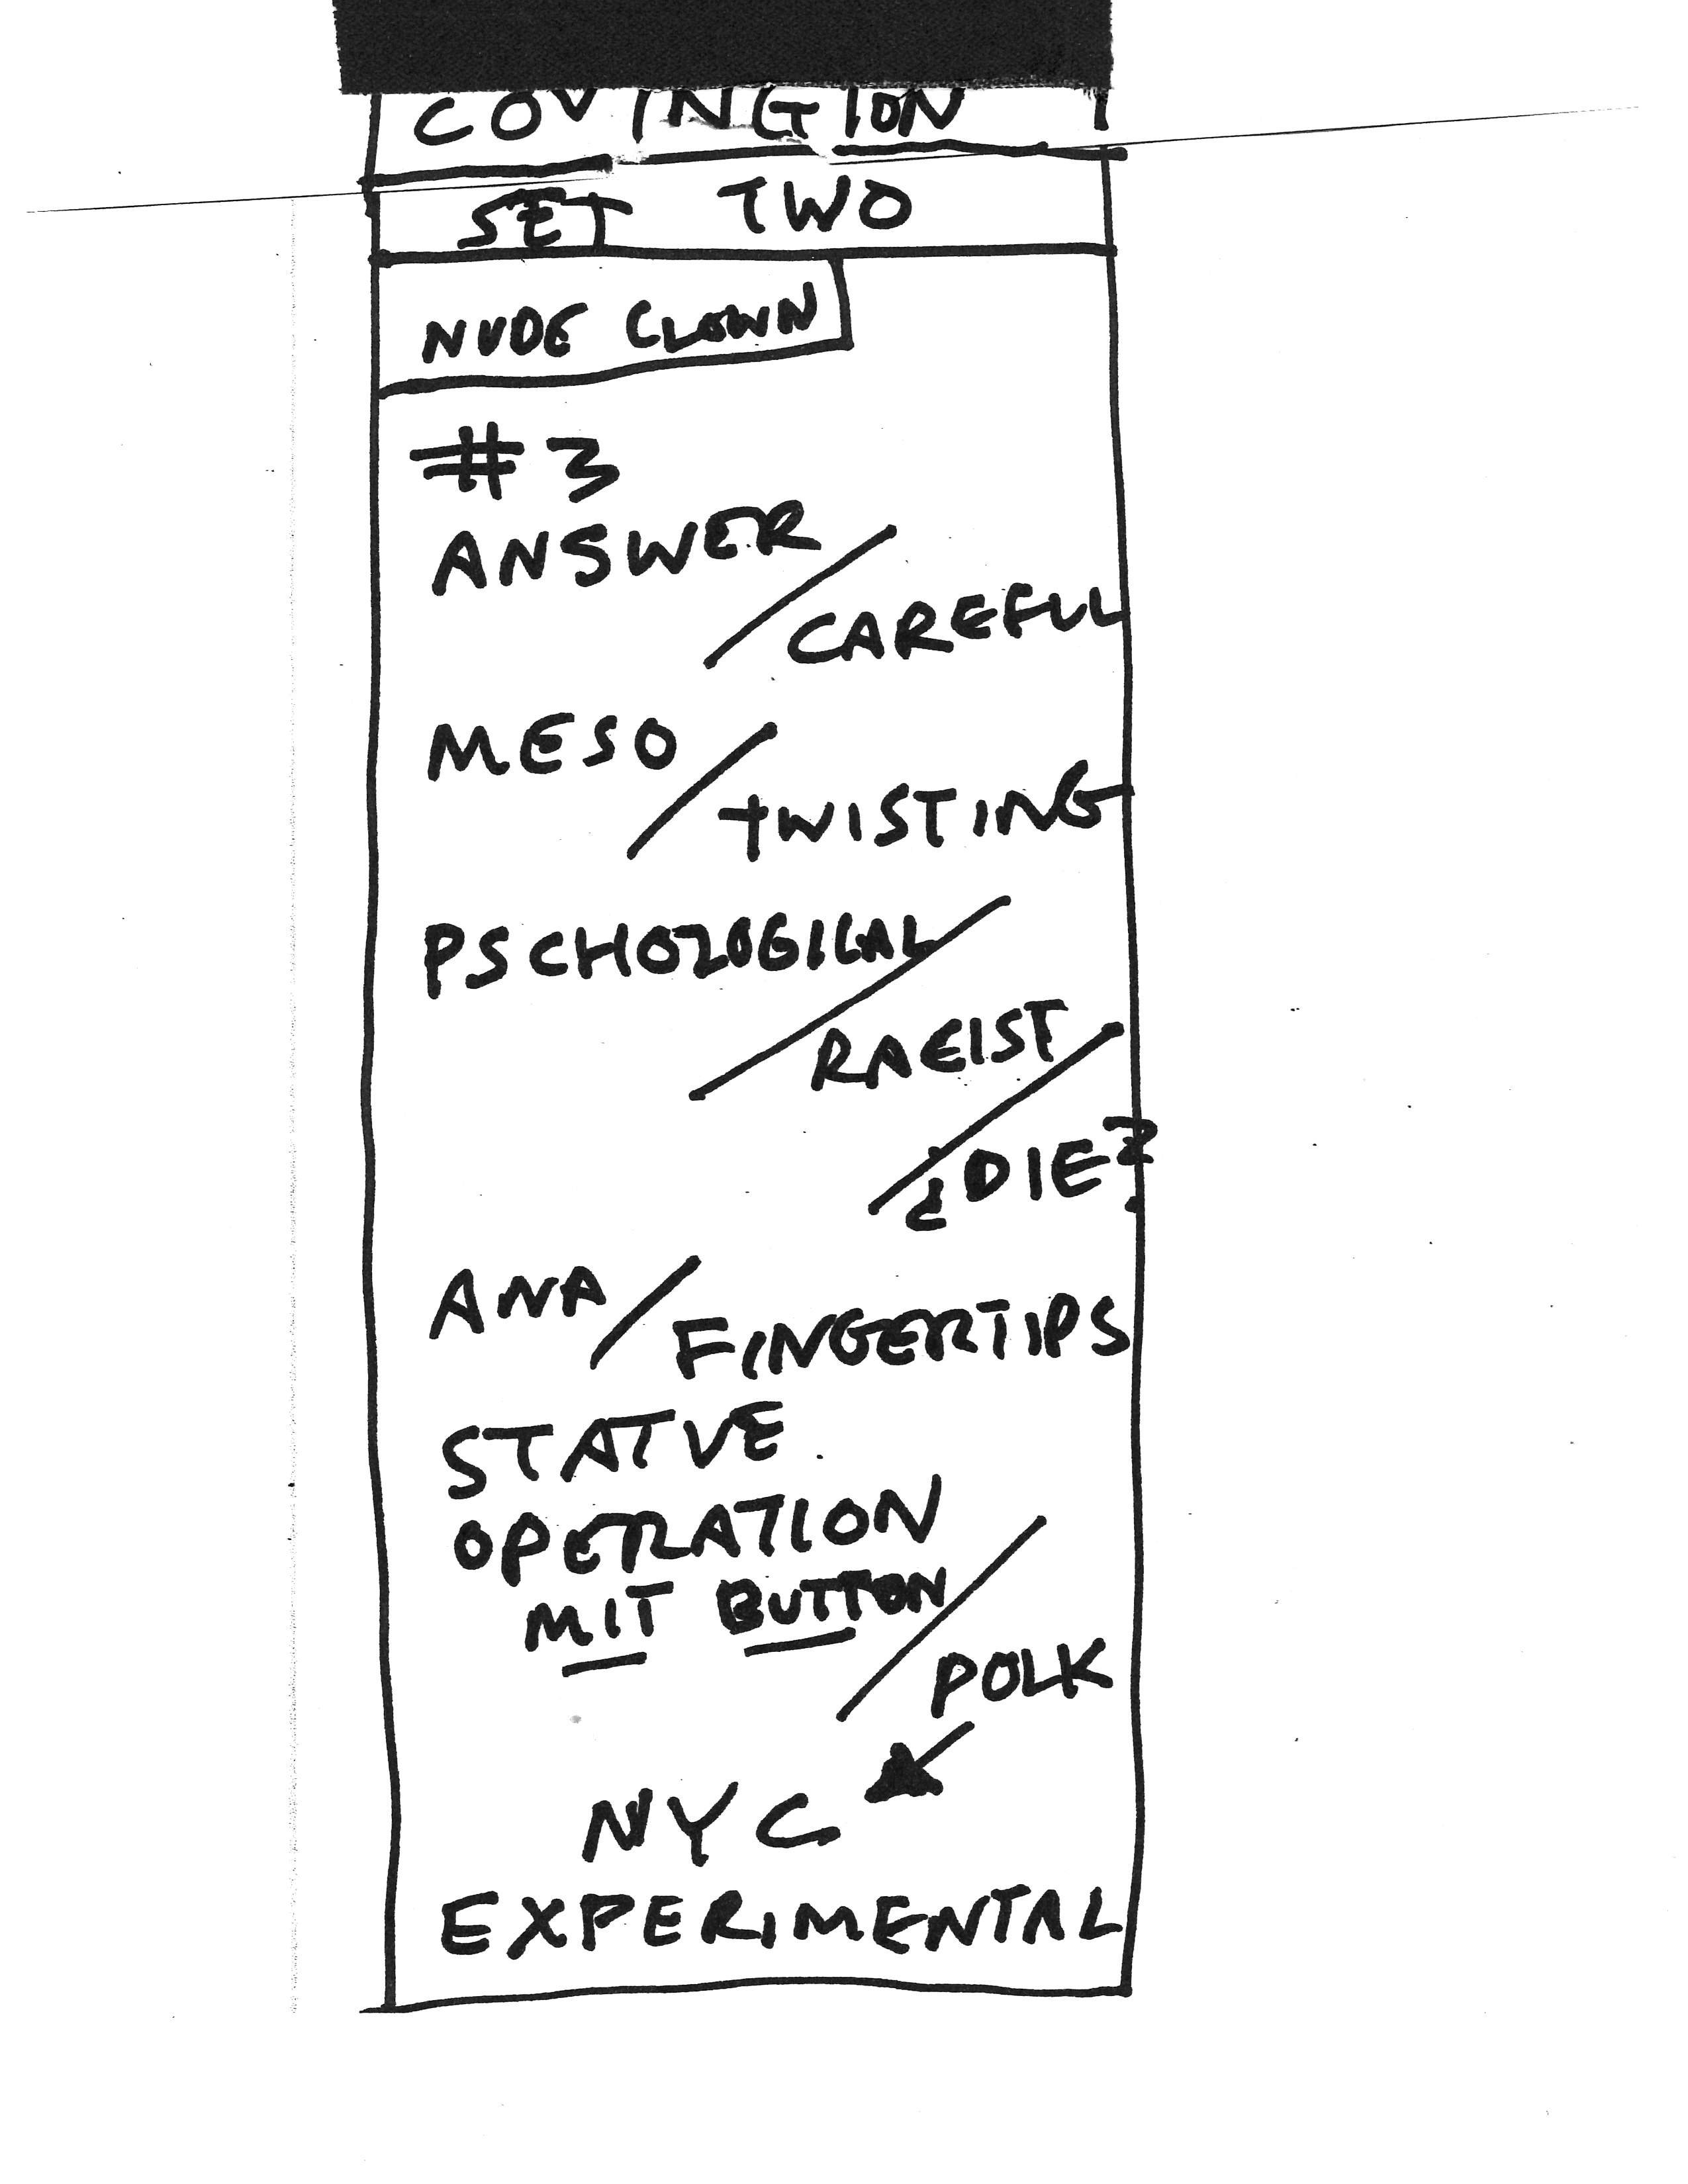 COVINGTON
SET TWO
NUDE CLOWN
#3
ANSWER/
CAREFUL
MESO/
TWISTING
PSCHOLOGICAL/
RACIST/
¿DIE?
ANA/FINGERTIPS
STATUE
OPERATION
MIT BUTTON/
POLK
NYC
EXPERIMENTAL